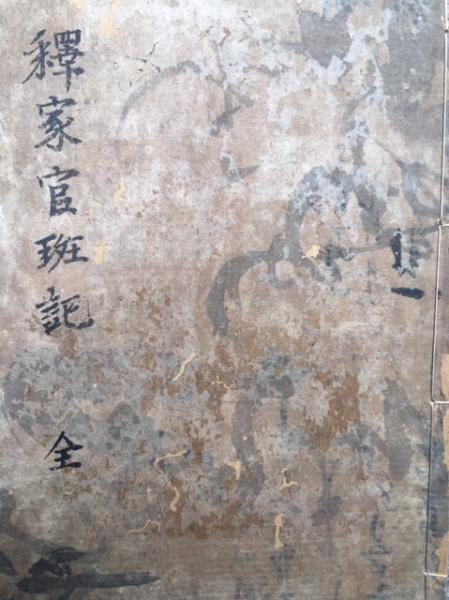 釋家官班記
全